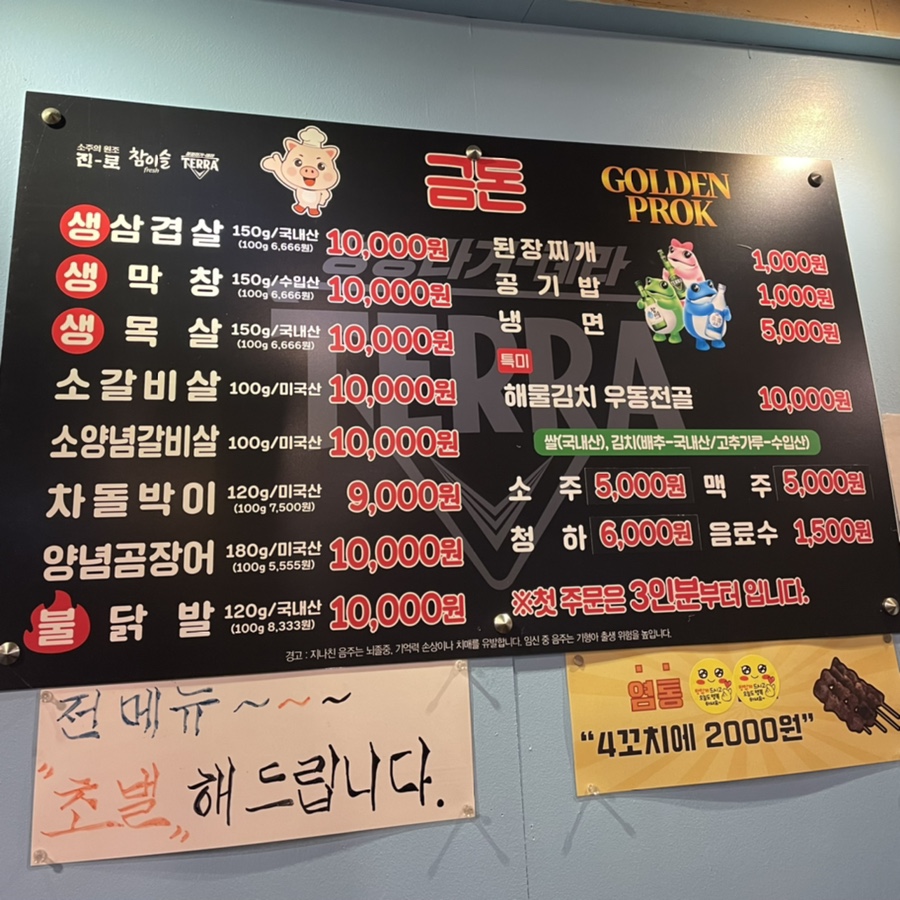 소주의 원조
진-로 참이슬 fresh TERRA
금돈
GOLDEN
PROK
생삼겹살 150g/국내산 10,000원
(100g 6,666원)
생막창 150g/수입산 10,000원
(100g 6,666원)
생목살 150g/국내산 10,000원
(100g 6,666원)
소갈비살 100g/미국산 10,000원
소양념갈비살 100g/미국산 10,000원
차돌박이 120g/미국산 9,000원
(100g 7,500원)
양념곰장어 180g/미국산 10,000원
(100g 5,555원)
불닭발 120g/국내산 10,000원
(100g 8,333원)
된장찌개 1,000원
공기밥 1,000원
냉면 5,000원
특미
해물김치 우동전골 10,000원
쌀(국내산), 김치(배추-국내산/고추가루-수입산)
소주 5,000원 맥주 5,000원
청하 6,000원 음료수 1,500원
※첫 주문은 3인분부터 입니다.
경고 : 지나친 음주는 뇌졸중, 기억력 손상이나 치매를 유발합니다. 임신 중 음주는 기형아 출생 위험을 높입니다.
TERRA
전메뉴~~~
"초벌" 해드립니다.
염통
"4꼬치에 2000원"